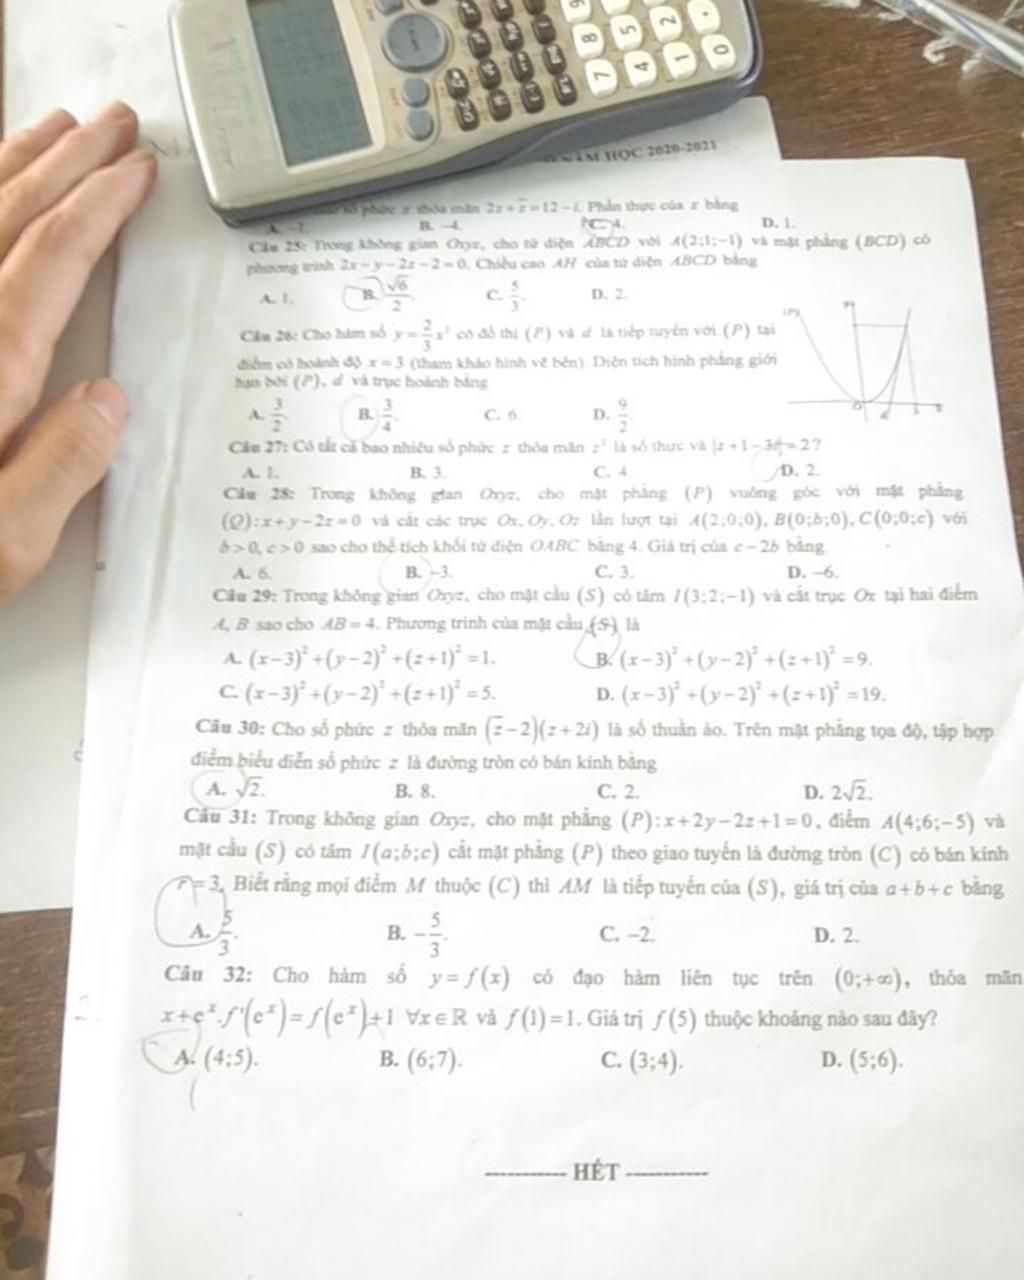 NĂM HỌC 2020-2021
số phức z thỏa mãn 2z + z̄ = 12 − i. Phần thực của z bằng
A. −1. B. −4. C. 4. D. 1.
Câu 25: Trong không gian Oxyz, cho tứ diện ABCD với A(2;1;−1) và mặt phẳng (BCD) có
phương trình 2x − y − 2z − 2 = 0. Chiều cao AH của tứ diện ABCD bằng
A. 1. B. √6/2. C. 5/3. D. 2.
Câu 26: Cho hàm số y = 2/3 x² có đồ thị (P) và d là tiếp tuyến với (P) tại
điểm có hoành độ x = 3 (tham khảo hình vẽ bên). Diện tích hình phẳng giới
hạn bởi (P), d và trục hoành bằng
A. 3/2. B. 3/4. C. 6. D. 9/2.
Câu 27: Có tất cả bao nhiêu số phức z thỏa mãn z² là số thực và |z + 1 − 3i| = 2?
A. 1. B. 3. C. 4 D. 2.
Câu 28: Trong không gian Oxyz, cho mặt phẳng (P) vuông góc với mặt phẳng
(Q): x + y − 2z = 0 và cắt các trục Ox, Oy, Oz lần lượt tại A(2;0;0), B(0;b;0), C(0;0;c) với
b > 0, c > 0 sao cho thể tích khối tứ diện OABC bằng 4. Giá trị của c − 2b bằng
A. 6. B. −3. C. 3. D. −6.
Câu 29: Trong không gian Oxyz, cho mặt cầu (S) có tâm I(3;2;−1) và cắt trục Ox tại hai điểm
A, B sao cho AB = 4. Phương trình của mặt cầu (S) là
A. (x−3)² + (y−2)² + (z+1)² = 1. B. (x−3)² + (y−2)² + (z+1)² = 9.
C. (x−3)² + (y−2)² + (z+1)² = 5. D. (x−3)² + (y−2)² + (z+1)² = 19.
Câu 30: Cho số phức z thỏa mãn (z̄ − 2)(z + 2i) là số thuần ảo. Trên mặt phẳng tọa độ, tập hợp
điểm biểu diễn số phức z là đường tròn có bán kính bằng
A. √2. B. 8. C. 2. D. 2√2.
Câu 31: Trong không gian Oxyz, cho mặt phẳng (P): x + 2y − 2z + 1 = 0, điểm A(4;6;−5) và
mặt cầu (S) có tâm I(a;b;c) cắt mặt phẳng (P) theo giao tuyến là đường tròn (C) có bán kính
r = 3. Biết rằng mọi điểm M thuộc (C) thì AM là tiếp tuyến của (S), giá trị của a + b + c bằng
A. 5/3. B. −5/3. C. −2. D. 2.
Câu 32: Cho hàm số y = f(x) có đạo hàm liên tục trên (0;+∞), thỏa mãn
x + eˣ.f'(eˣ) = f(eˣ) + 1 ∀x ∈ ℝ và f(1) = 1. Giá trị f(5) thuộc khoảng nào sau đây?
A. (4;5). B. (6;7). C. (3;4). D. (5;6).
---------- HẾT ----------